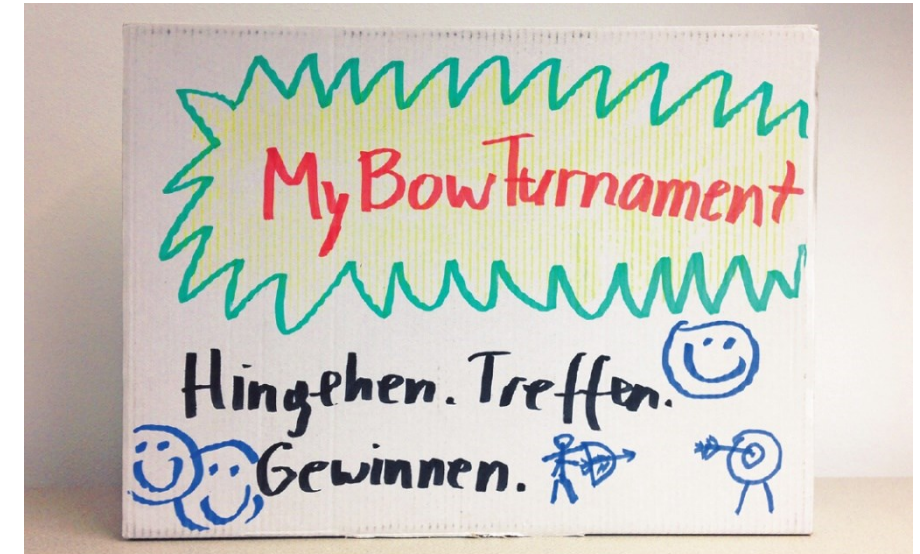 MyBowTurnament
Hingehen. Treffen.
Gewinnen.